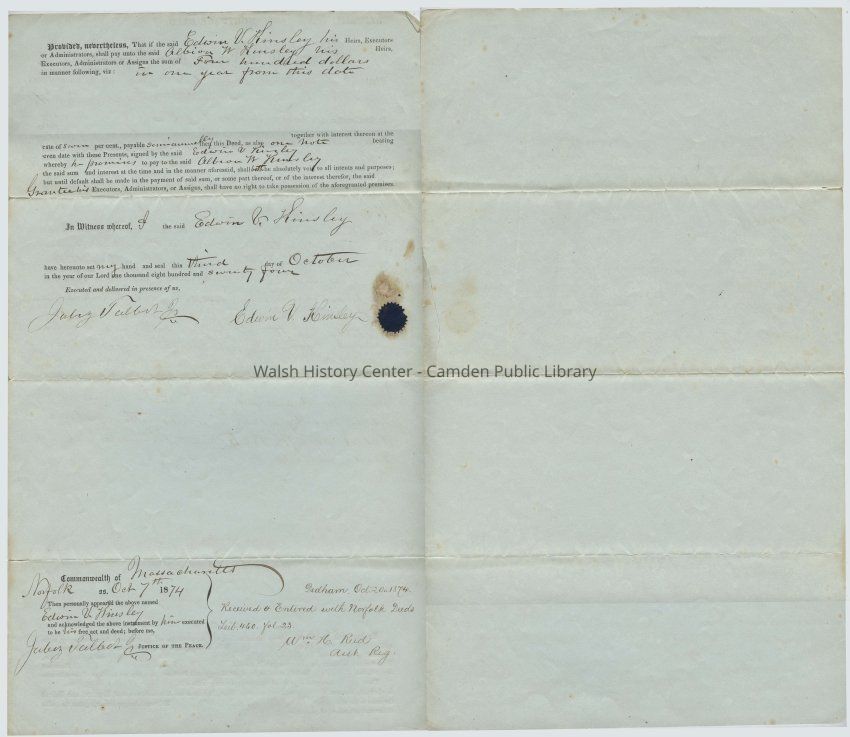 Provided, nevertheless, That if the said Edwin V. Kinsley his Heirs, Executors
or Administrators, shall pay unto the said Albion W Kinsley his Heirs,
Executors, Administrators or Assigns the sum of Four hundred dollars
in manner following, viz: in one year from this date
together with interest thereon at the
rate of seven per cent., payable semiannually then this Deed, as also one note bearing
even date with these Presents, signed by the said Edwin V Kinsley
whereby he promises to pay to the said Albion W Kinsley
the said sum and interest at the time and in the manner aforesaid, shall both be absolutely void to all intents and purposes;
but until default shall be made in the payment of said sum, or some part thereof, or of the interest therefor, the said
Grantee his Executors, Administrators, or Assigns, shall have no right to take possession of the aforegranted premises
In Witness whereof, I the said Edwin V. Kinsley
have hereunto set my hand and seal this third day of October
in the year of our Lord one thousand eight hundred and seventy four
Executed and delivered in presence of us,
Jabez Talbot Jr. Edwin V. Kinsley
Walsh History Center - Camden Public Library
Commonwealth of Massachusetts
Norfolk ss. Oct 7th 1874
Then personally appeared the above named
Edwin V. Kinsley
and acknowledged the above instrument by him executed
to be his free act and deed; before me,
Jabez Talbot Jr JUSTICE OF THE PEACE.
Dedham, Oct. 20. 1874.
Received & Entered with Norfolk Deeds
Lib. 460. fol. 23.
Wm H. Reid
Asst. Reg.